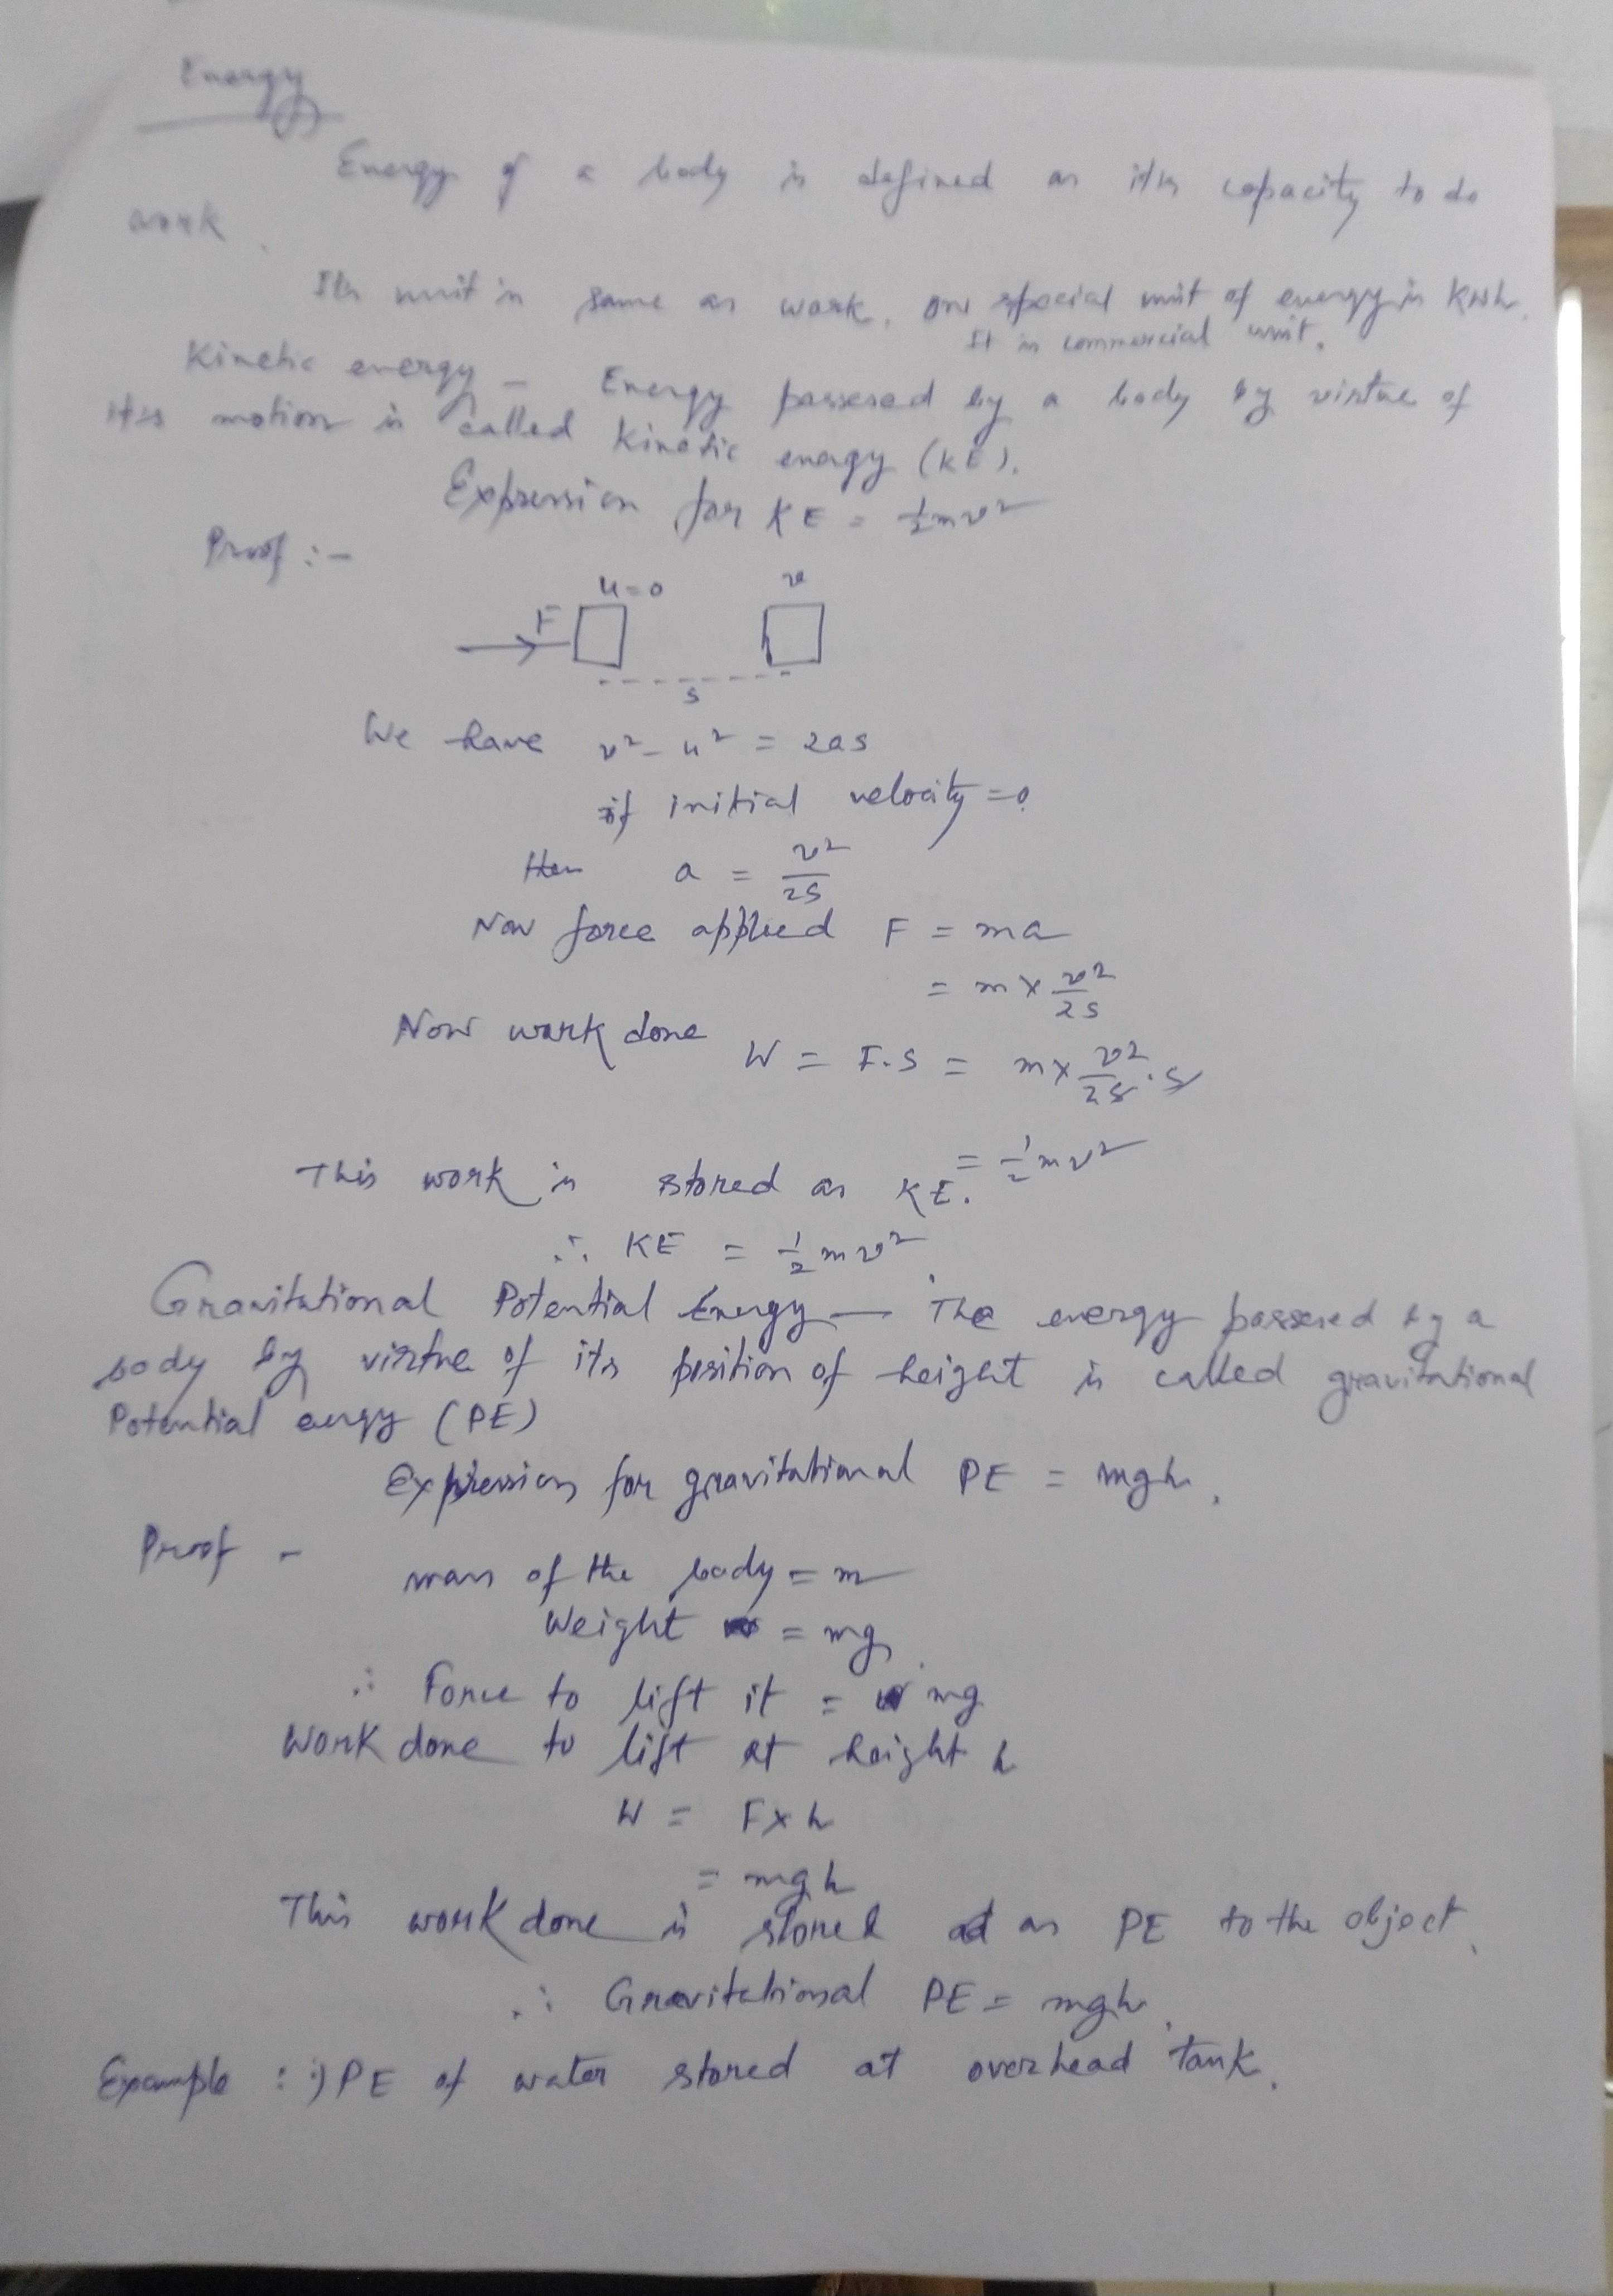 Energy
Energy of a body is defined as its capacity to do
work.
Its unit is same as work. One special unit of energy is KWh.
It is commercial unit.
Kinetic energy - Energy possesed by a body by virtue of
its motion is called Kinetic energy (KE).
Expression for KE = ½mv²
Proof :-
u=0 v
F
s
We have v² - u² = 2as
if initial velocity = 0
then a = v²/2s
Now force applied F = ma
= m × v²/2s
Now work done W = F.s = m × v²/2s . s
= ½mv²
This work is stored as KE.
∴ KE = ½mv².
Gravitational Potential Energy — The energy possesed by a
body by virtue of its position of height is called gravitational
Potential energy (PE)
Expression for gravitational PE = mgh.
Proof -
mass of the body = m
Weight = mg
∴ Force to lift it = mg
Work done to lift at height h
W = F×h
= mgh
This work done is stored as PE to the object.
∴ Gravitational PE = mgh.
Example : i) PE of water stored at overhead tank.